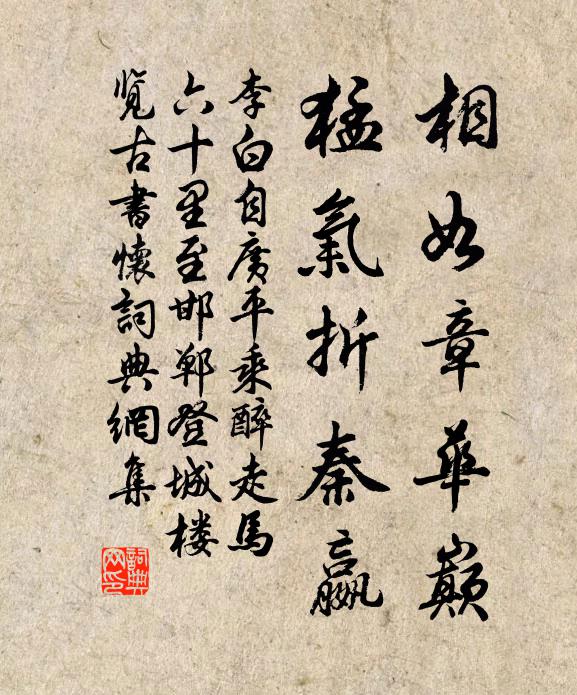 相如章華巔
猛氣折秦嬴
李白自廣平乘醉走馬
六十里至邯鄲登城楼
览古書懷詞典網集
詞典网印